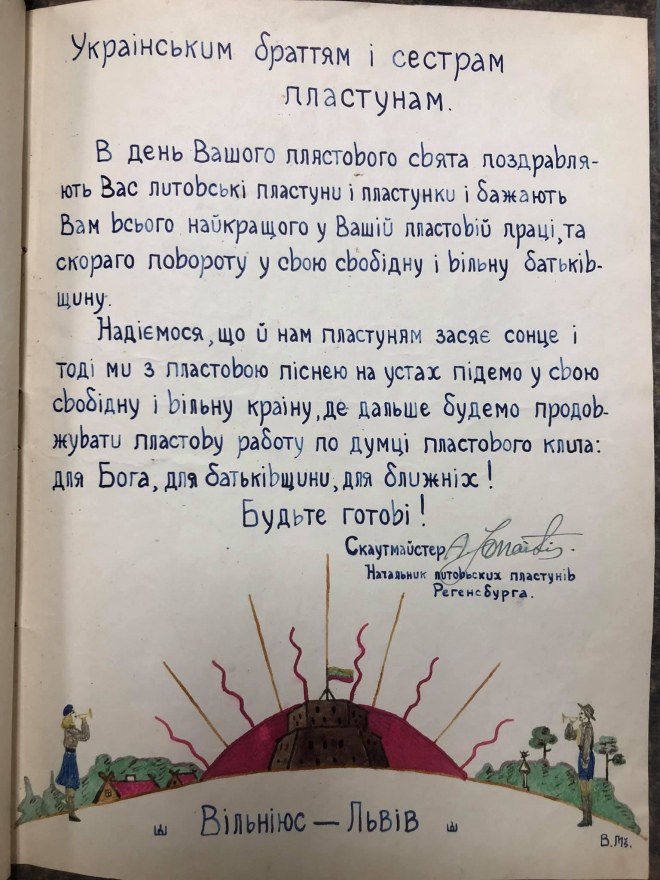 Українським браттям і сестрам
пластунам.
В день Вашого плястового свята поздравля-
ють Вас литовські пластуни і пластунки і бажають
Вам всього найкращого у Вашій пластовій праці, та
скораго повороту у свою свобідну і вільну батьків-
щину.
Надіємося, що й нам пластуням засяє сонце і
тоді ми з пластовою піснею на устах підемо у свою
свобідну і вільну країну, де дальше будемо продов-
жувати пластову работу по думці пластового клича:
для Бога, для батьківщини, для ближніх!
Будьте готові!
Скаутмайстер
Начальник литовьских пластунів
Регенсбурга.
Вільніюс — Львів